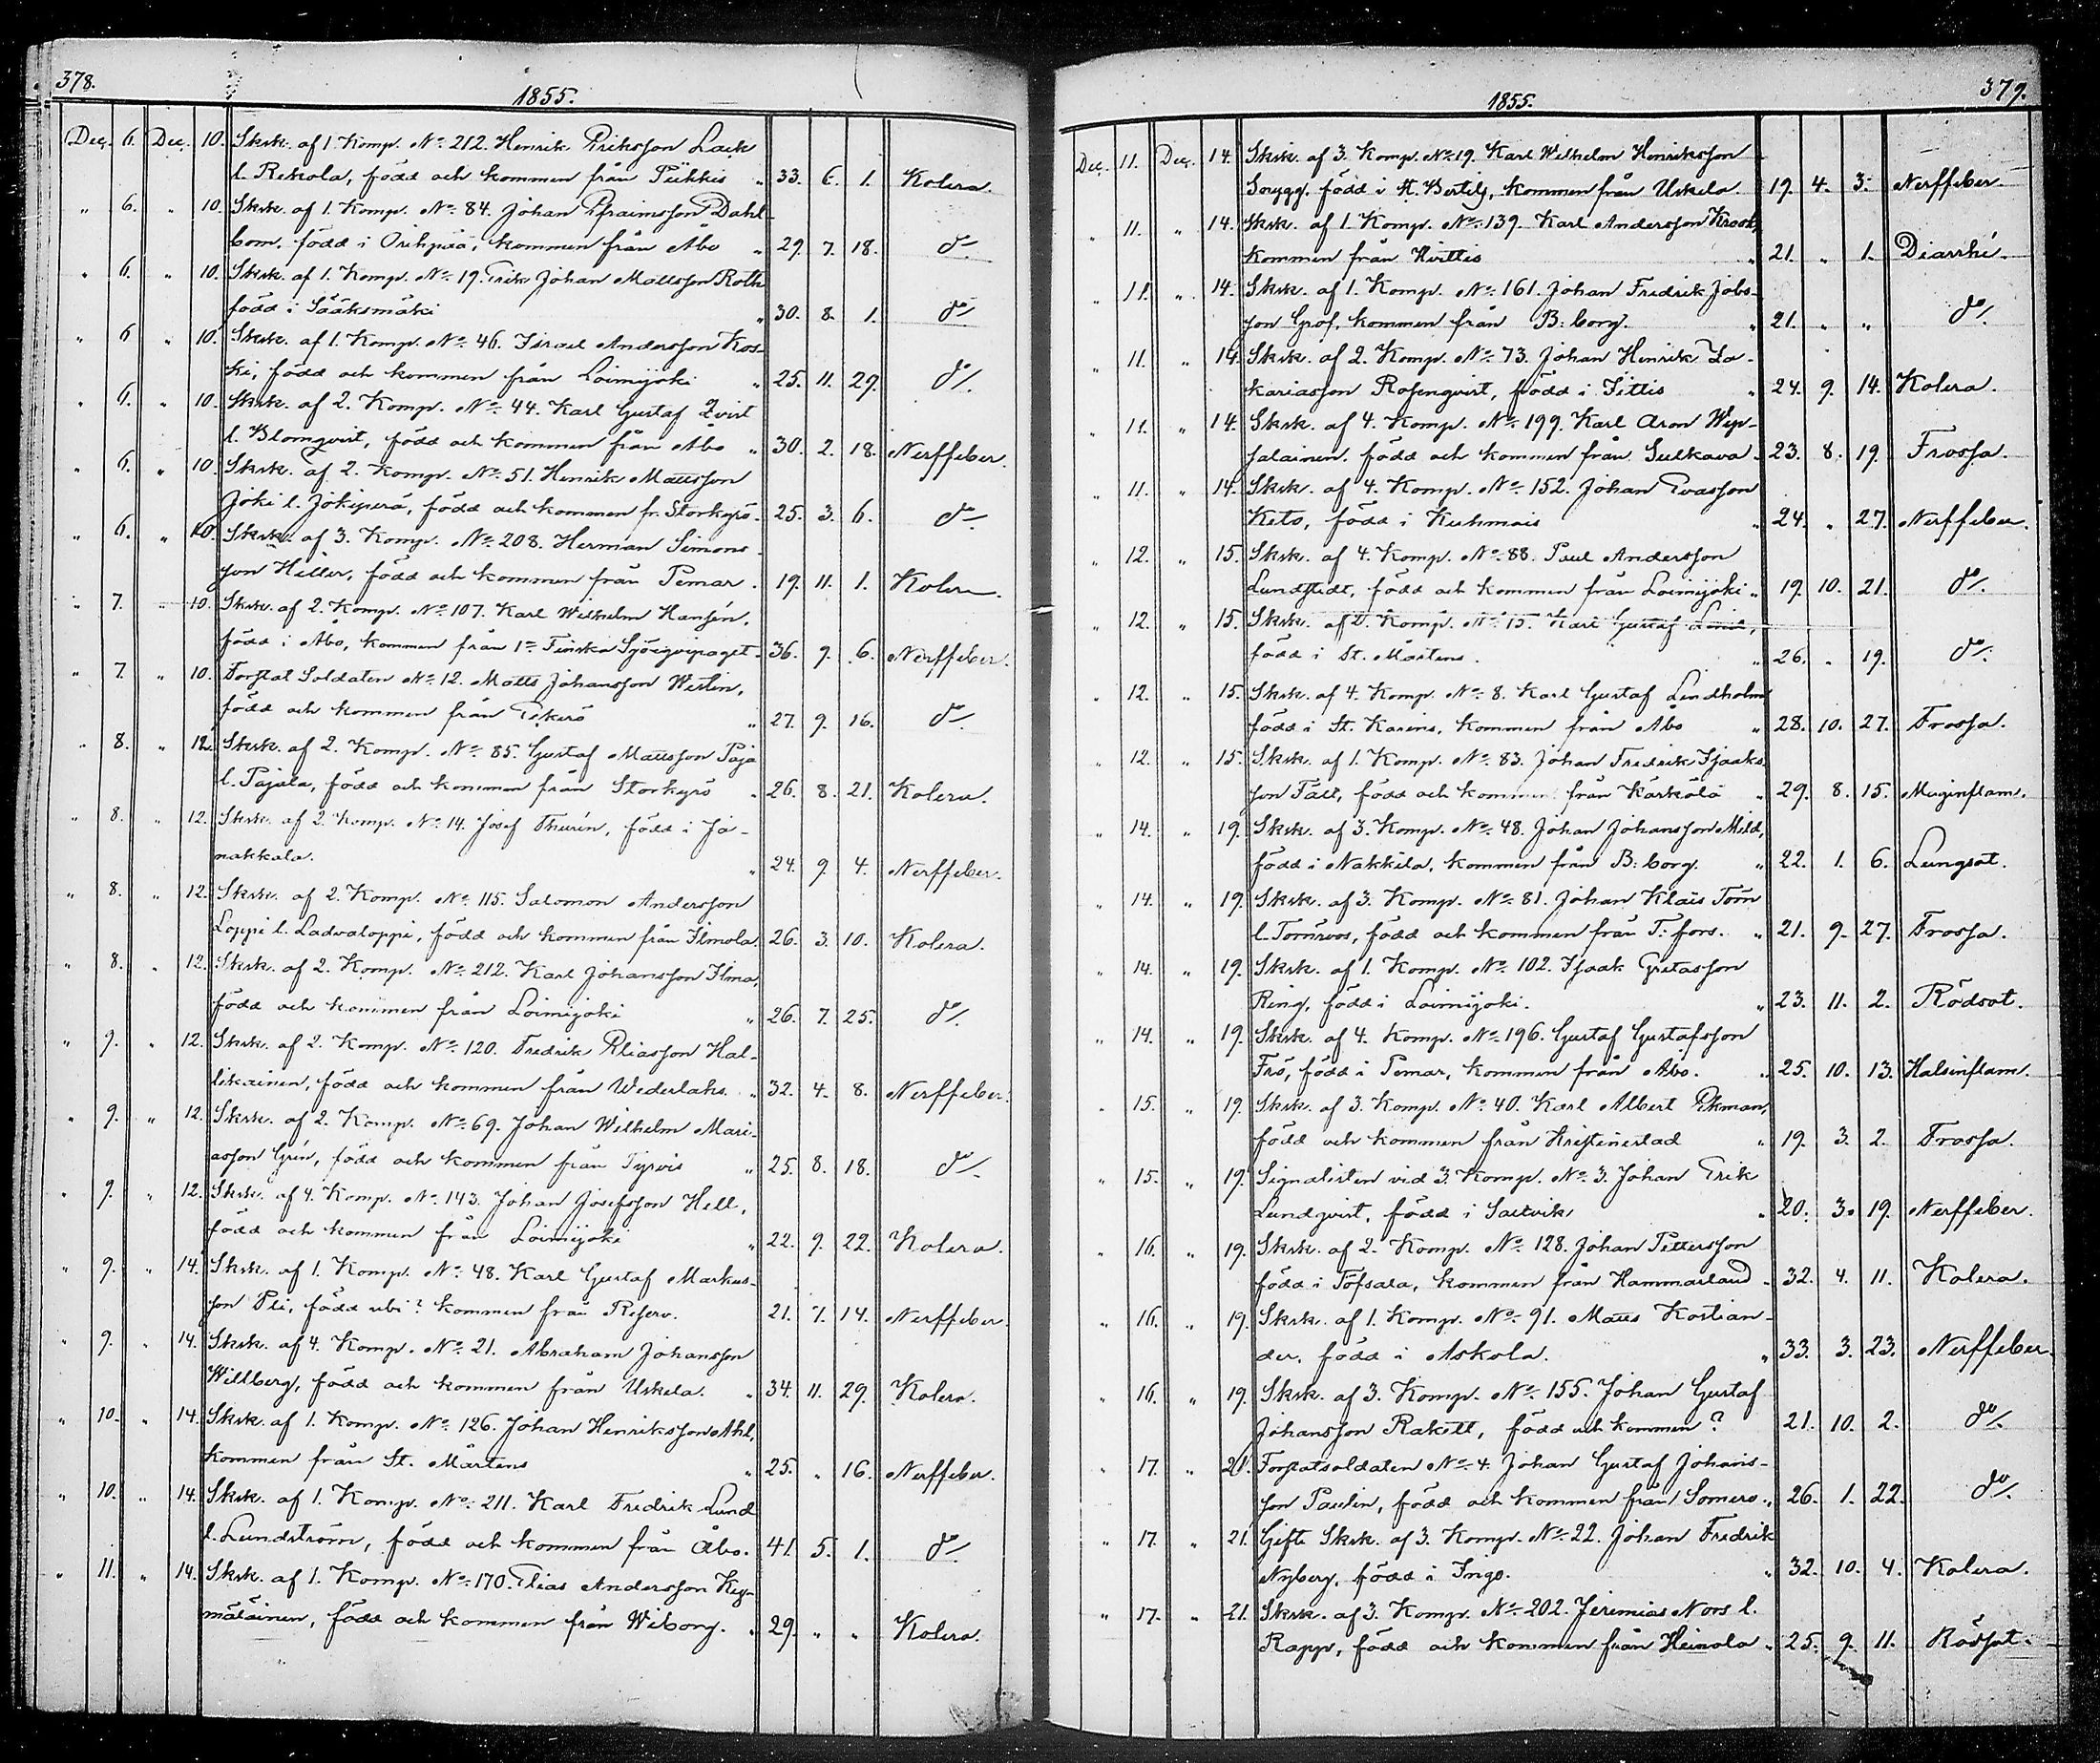 378.
1855.
Dec. 6. Dec. 10. Skrk. af 1. Komp. No. 212. Henrik Eriksson Lack
l. Rekola, född och kommen från Pükkis „ 33. 6. 1. Kolera.
„ 6. „ 10. Skrk. af 1. Komp. No. 84. Johan Efraimsson Dahl-
bom, född i Orihpää, kommen från Åbo „ 29. 7. 18. do
„ 6. „ 10. Skrk. af 1. Komp. No. 19. Erik Johan Mattsson Roth
född i Sääksmäki „ 30. 8. 1. do
„ 6 „ 10. Skrk. af 1. Komp. No. 46. Israel Andersson Kos-
ki, född och kommen från Loimijoki „ 25. 11. 29. do
„ 6. „ 10. Skrk. af 2. Komp. No. 44. Karl Gustaf Qvist
l. Blomqvist, född och kommen från Åbo „ 30. 2. 18. Nerffeber.
„ 6. „ 10. Skrk. af 2. Komp. No. 51. Henrik Mattsson
Joki l. Jokiperä, född och kommen fr. Storkyrö. 25. 3. 6. do
„ 6. „ 10. Skrk. af 3. Komp. No. 208. Herman Simons-
son Hiller, född och kommen från Pemar. 19. 11. 1. Kolera.
„ 7. „ 10. Skrk. af 2. Komp. No. 107. Karl Wilhelm Hansén,
född i Åbo, kommen från 1a Finska Sjöeqvipaget. 36. 9. 6. Nerffeber.
„ 7. „ 10. Forstat Soldaten No. 12. Matts Johansson Westin,
född och kommen från Ekerö „ 27. 9. 16. do
„ 8. „ 12. Skrk. af 2. Komp. No. 85. Gustaf Mattsson Paja
l. Pajala, född och kommen från Storkyrö „ 26. 8. 21. Kolera.
„ 8. „ 12. Skrk. af 2. Komp. No. 14. Josef Thurén, född i Ja-
nakkala. „ 24. 9. 4. Nerffeber.
„ 8. „ 12. Skrk. af 2. Komp. No. 115. Salomon Andersson
Loppi l. Ladvaloppi, född och kommen från Ilmola. 26. 3. 10. Kolera.
„ 8. „ 12. Skrk. af 2. Komp. No. 212. Karl Johansson Ilma,
född och kommen från Loimijoki „ 26. 7. 25. do
„ 9. „ 12. Skrk. af 2. Komp. No. 120. Fredrik Eliasson Hal-
likainen, född och kommen från Wederlaks. „ 32. 4. 8. Nerffeber.
„ 9. „ 12. Skrk. af 2. Komp. No. 69. Johan Wilhelm Mari-
asson Grén, född och kommen från Tyrvis „ 25. 8. 18. do
„ 9. „ 12. Skrk. af 4. Komp. No. 143. Johan Josefsson Hell,
född och kommen från Loimijoki „ 22. 9. 22. Kolera.
„ 9. „ 14. Skrk. af 1. Komp. No. 48. Karl Gustaf Markus-
son Pli, född ubi? kommen från Reserv. 21. 7. 14. Nerffeber.
„ 9. „ 14. Skrk. af 4. Komp. No. 21. Abraham Johansson
Willberg, född och kommen från Uskela. „ 34. 11. 29. Kolera.
„ 10. „ 14. Skrk. af 1. Komp. No. 126. Johan Henriksson Ahl,
kommen från St. Mårtens „ 25. „ 16. Nerffeber.
„ 10. „ 14. Skrk. af 1. Komp. No. 211. Karl Fredrik Lund
l. Lundström, född och kommen från Åbo. 41. 5. 1. do
„ 11. „ 14. Skrk. af 1. Komp. No. 170. Elias Andersson Key-
mäläinen, född och kommen från Wiborg. „ 29. „ „ Kolera.
379.
1855.
Dec. 11. Dec. 14. Skrk. af 3. Komp. No. 19. Karl Wilhelm Henriksson
Snygg, född i St. Bertils, kommen från Uskela. 19. 4. 3. Nerffeber.
„ 11. „ 14. Skrk. af 1. Komp. No. 139. Karl Andersson Krook,
kommen från Wirttis „ 21. „ 1. Diarrhé.
„ 11. „ 14. Skrk. af 1. Komp. No. 161. Johan Fredrik Jobs-
son Grof, kommen från B:borg. „ 21. „ „ do
„ 11. „ 14. Skrk. af 2. Komp. No. 73. Johan Henrik Za-
kariasson Rosenqvist, född i Sittis „ 24. 9. 14. Kolera.
„ 11. „ 14. Skrk. af 4. Komp. No. 199. Karl Aron Wep-
salainen, född och kommen från Sulkava. 23. 8. 19. Frossa.
„ 11. „ 14. Skrk. af 4. Komp. No. 152. Johan Evasson
Keto, född i Kuhmois „ 24. „ 27. Nerffeber.
„ 12. „ 15. Skrk. af 4. Komp. No. 88. Paul Andersson
Lundstedt, född och kommen från Loimijoki „ 19. 10. 21. do
„ 12. „ 15. Skrk. af Komp. No. 15. Karl Gustaf Lind,
född i St. Mårtens. „ 26. „ 19. do
„ 12. „ 15. Skrk. af 4. Komp. No. 8. Karl Gustaf Lindholm
född i St. Karins, kommen från Åbo „ 28. 10. 27. Frossa.
„ 12. „ 15. Skrk. af 1. Komp. No. 83. Johan Fredrik Isaaks-
son Fält, född och kommen från Kärkölä „ 29. 8. 15. Maginflam.
„ 14. „ 19. Skrk. af 3. Komp. No. 48. Johan Johansson Mild,
född i Nakkila, kommen från B:borg. „ 22. 1. 6. Lungsot.
„ 14. „ 19. Skrk. af 3. Komp. No. 81. Johan Klais Törn
l. Törnroos, född och kommen från T:fors. „ 21. 9. 27. Frossa.
„ 14. „ 19. Skrk. af 1. Komp. No. 102. Isaak Gretasson
Ring, född i Loimijoki. „ 23. 11. 2. Rödsot.
„ 14. „ 19. Skrk. af 4. Komp. No. 196. Gustaf Gustafsson
Frö, född i Pemar, kommen från Åbo. „ 25. 10. 13. Halsinflam.
„ 15. „ 19. Skrk. af 3. Komp. No. 40. Karl Albert Ekman,
född och kommen från Kristinestad „ 19. 3. 2. Frossa.
„ 15. „ 19. Signalisten vid 3. Komp. No. 3. Johan Erik
Lundqvist, född i Saltvik „ 20. 3. 19. Nerffeber.
„ 16. „ 19. Skrk. af 2. Komp. No. 128. Johan Pettersson
född i Töfsala, kommen från Hammarland. 32. 4. 11. Kolera.
„ 16. „ 19. Skrk. af 1. Komp. No. 91. Matts Kostian-
der, född i Askola. „ 33. 3. 23. Nerffeber.
„ 16. „ 19. Skrk. af 3. Komp. No. 155. Johan Gustaf
Johansson Rakett, född och kommen? 21. 10. 2. do
„ 17. „ 21. Forstatsoldaten No. 4. Johan Gustaf Johans-
son Paulin, född och kommen från Somero „ 26. 1. 22. do
„ 17. „ 21. Gifte Skrk. af 3. Komp. No. 22. Johan Fredrik
Nyberg, född i Ingo. „ 32. 10. 4. Kolera.
„ 17. „ 21. Skrk. af 3. Komp. No. 202. Jeremias Nors l.
Rapp, född och kommen från Heinola „ 25. 9. 11. Rödsot.